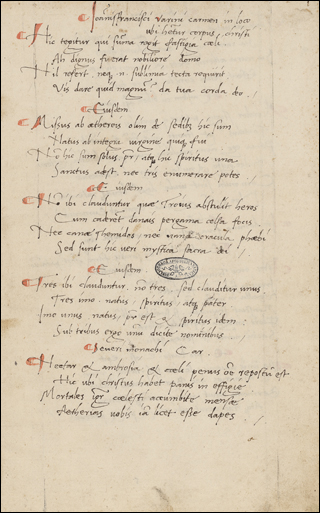 Joannis francisci Vararii carmen in loco
ubi habetur corpus christi
Hic tegitur qui summa regit fastigia cœli
Ah dignus fuerat nobiliore domo
Nil refert neque in sublimia tecta requirit
Vis dare quid magnum da tua corda deo
Eiusdem
Missus ab æthereis olim de sedibus hic sum
Natus ab integra virgine quique fui
Nec hic sum solus pater atque hic spiritus una
Sanctus adest nec tris enumerare potes
Eiusdem
Non ibi clauduntur quæ Troius abstulit heros
Cum caderet danais pergama celsa focis
Nec canæ Themidos, nec oracula phœbi
Sed sunt hic veri mystica sacra dei
Eiusdem
Tres ibi clauduntur, no tres sed clauditur unus
Tres imo natus, spiritus, atque pater
Imo unus natus, pater est & spiritus idem
Sub tribus ergo unum dicite nominibus
Severi monachi Car.
Nectar & ambrosia, & cœli penus repostum est
Hic ubi christus habet panis in effigie
Mortales igitur cœlesti accumbite mensæ
Aetherias vobis iam licet esse dapes